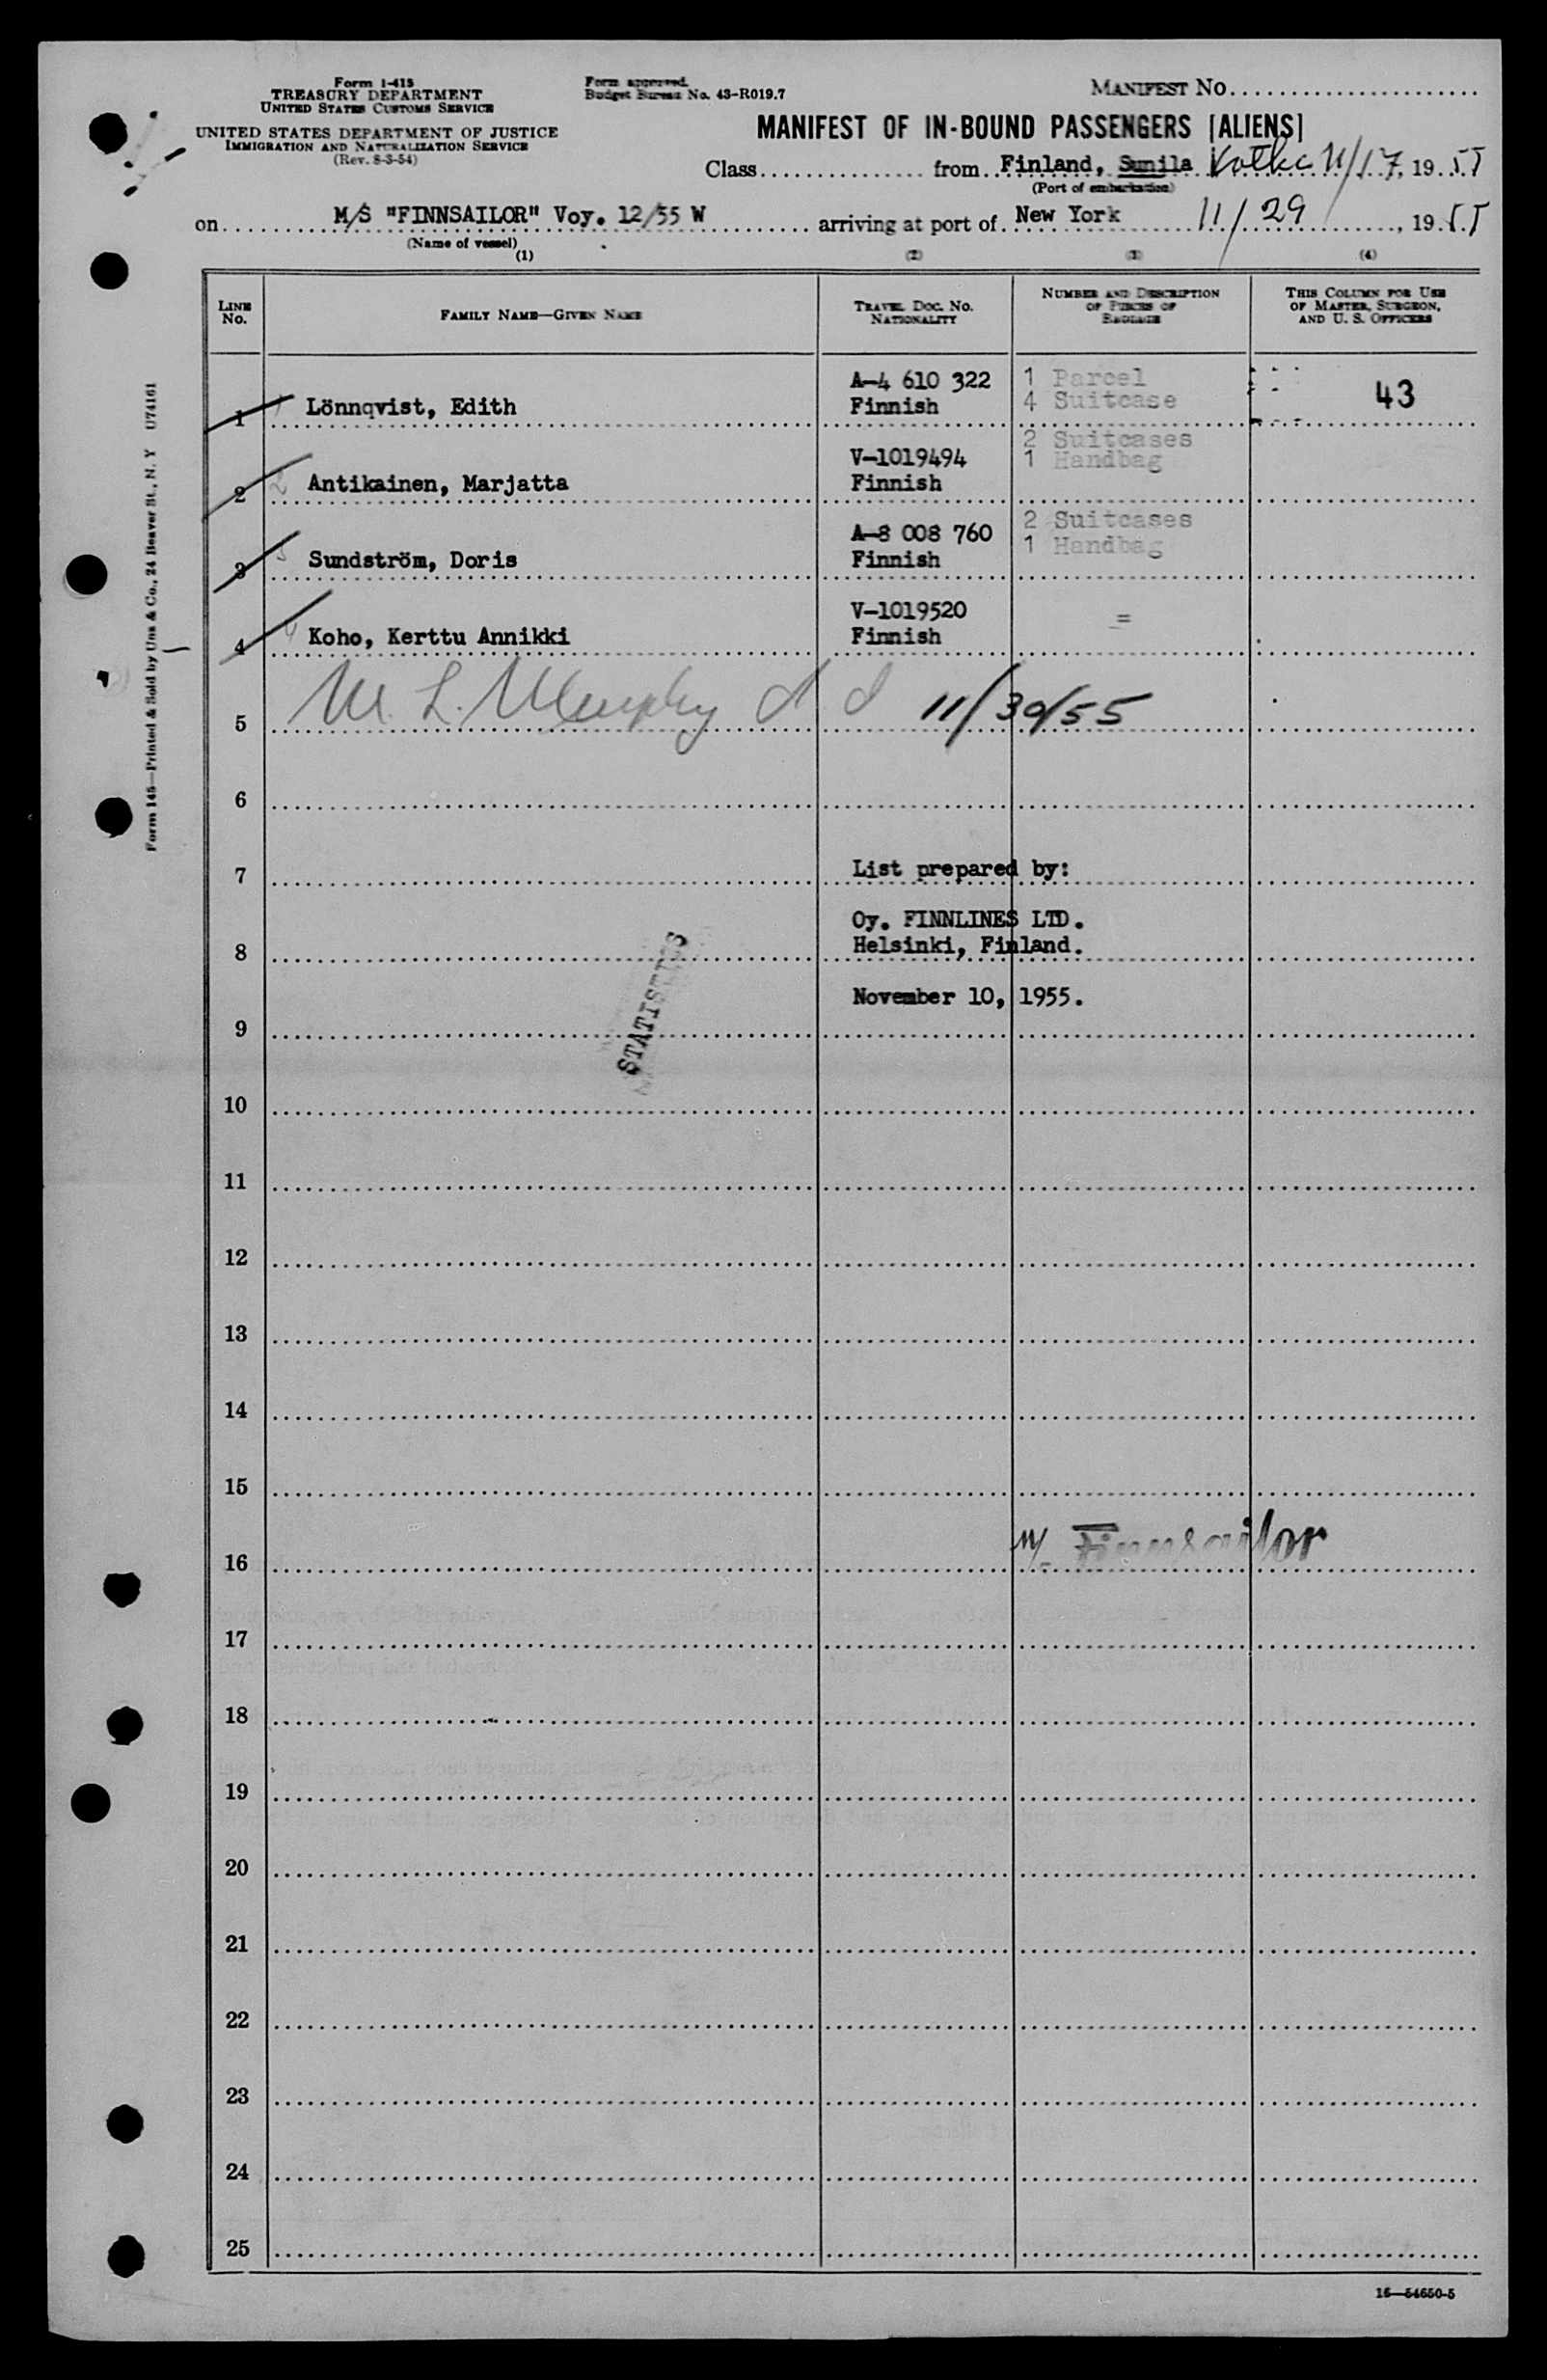 Form I-415
TREASURY DEPARTMENT
UNITED STATES CUSTOMS SERVICE
UNITED STATES DEPARTMENT OF JUSTICE
IMMIGRATION AND NATURALIZATION SERVICE
(Rev. 8-3-54)
Form approved.
Budget Bureau No. 43-R019.7
MANIFEST NO.
MANIFEST OF IN-BOUND PASSENGERS [ALIENS]
Class from Finland, Sunila Kotka 11/17, 1955
(Port of embarkation)
on M/S "FINNSAILOR" Voy. 12/55 W arriving at port of New York 11/29, 1955
(Name of vessel)
(1) (2) (3) (4)
LINE NO.
FAMILY NAME—GIVEN NAME
TRAVEL DOC. NO.
NATIONALITY
NUMBER AND DESCRIPTION
OF PIECES OF
BAGGAGE
THIS COLUMN FOR USE
OF MASTER, SURGEON,
AND U. S. OFFICERS
A-4 610 322 1 Parcel
1 1 Lönnqvist, Edith Finnish 4 Suitcase 43
2 Suitcases
V-1019494 1 Handbag
2 2 Antikainen, Marjatta Finnish
2 Suitcases
A-8 008 760
1 Handbag
3 3 Sundström, Doris Finnish
V-1019520 =
4 4 Koho, Kerttu Annikki Finnish
5 M. L. Murphy 11/30/55
6
7 List prepared by:
Oy. FINNLINES LTD.
8 Helsinki, Finland.
November 10, 1955.
STATISTICS
9
10
11
12
13
14
15
16 M/S Finnsailor
17
18
19
20
21
22
23
24
25
16—54650-5
Form 145—Printed & Sold by Unz & Co., 24 Beaver St., N. Y U74161